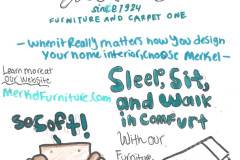 since 1924
FURNITURE AND CARPET ONE
- when it Really matters how you design
your home interior, choose Merkel -
Learn more at
our Website
MerkelFurniture.com
Sleep, Sit,
and Walk
in comfurt
So Soft!
With our
Furniture